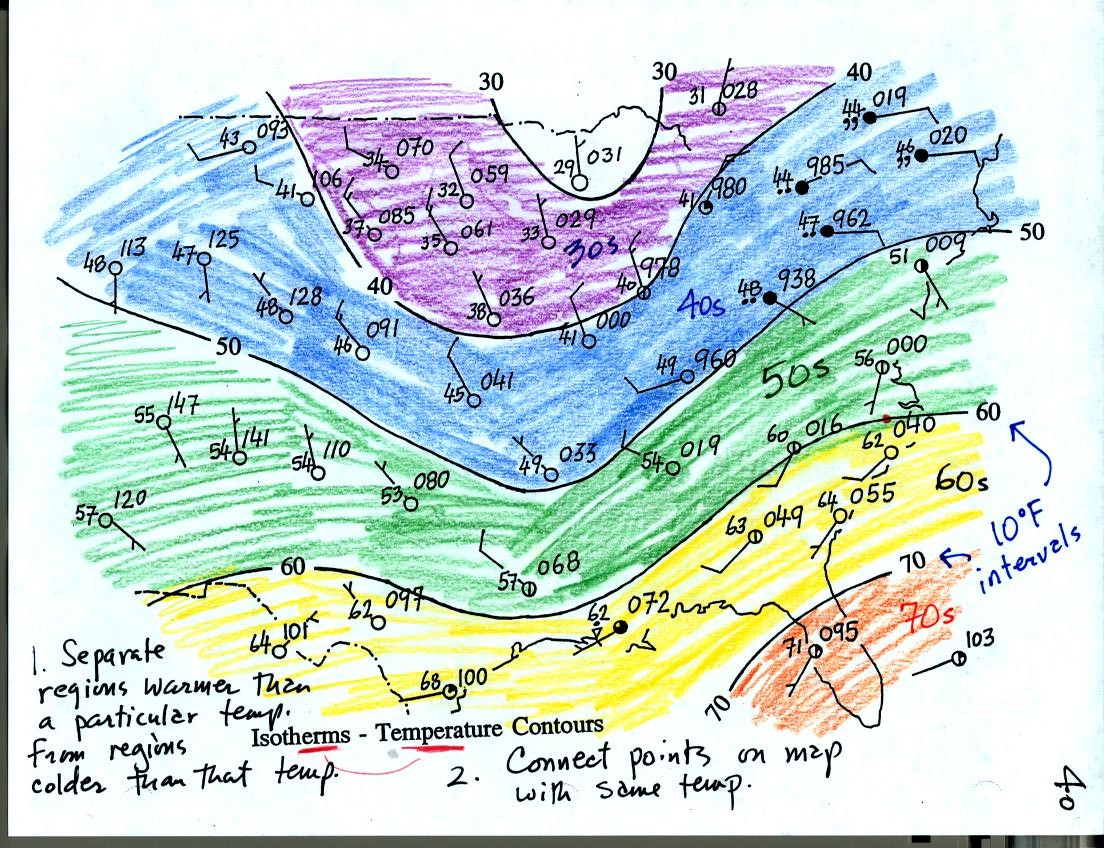 30
30
31 028
40
44 019
,,
43 093
46 020
,,
34 070
29 031
44 985
41 106
32 059
41 980
37 085
35 061
33 029
30s
47 962
50
51 009
48 113
47 125
40
978
40
40s
48 938
48 128
38 036
41 000
46 091
50
49 960
50s
56 000
45 041
55 147
60
60 016
62 040
54 141
54 110
49 033
54 019
53 080
60s
57 120
63 049
64 055
10°F
intervals
60
57 068
70
62 097
62 072
70s
64 101
71 095
103
68 100
70
1. Separate
regions warmer than
a particular temp.
from regions
colder than that temp.
Isotherms - Temperature Contours
2. Connect points on map
with same temp.
40